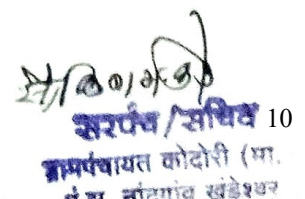 सरपंच/सचिव 10
ग्रामपंचायत कोदोरी (मा.
पं.स. नांदगांव खंडेश्वर